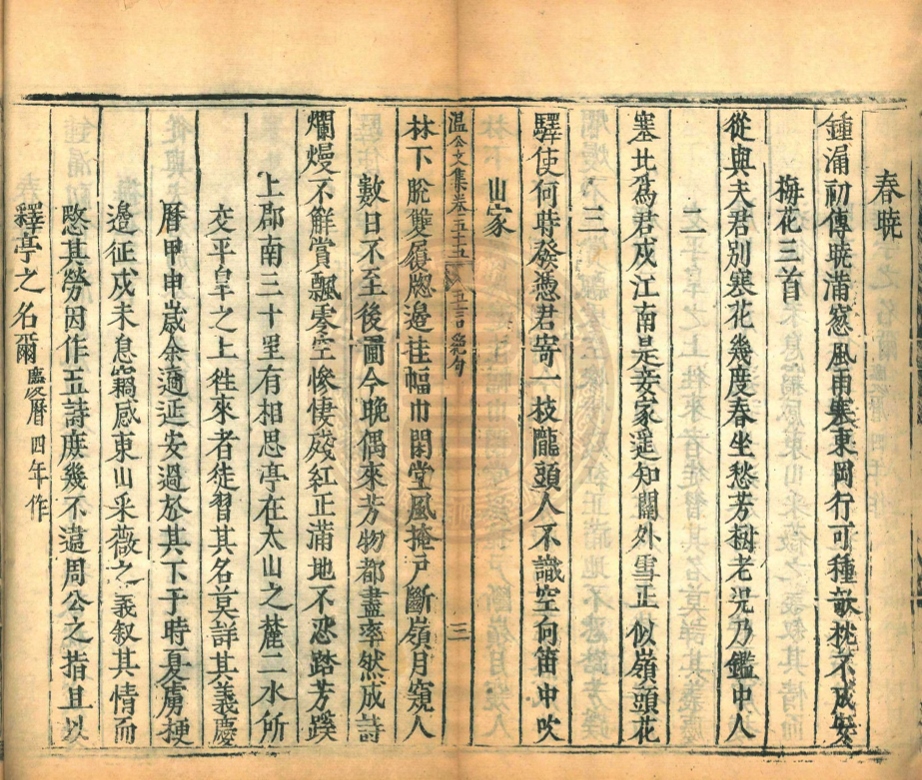 春曉
鍾漏初傳曉滿窓風雨寒東岡行可種歌枕不成安
梅花三首
從與夫君別寒花幾度春坐愁芳樹老況乃鑑中人
二
塞北爲君戍江南是妾家遥知關外雪正似嶺頭花
三
驛使何時發憑君寄一枝隴頭人不識空向笛中吹
山家
溫公文集卷二五十五 五言絶句 三
林下脫雙履牕邊挂幅巾閑堂風掩戸斷嶺月窺人
數日不至後圃今晚偶來芳物都盡率然成詩
爛熳不解賞飄零空慘悽殘紅正滿地不忍踏芳蹊
上郡南三十里有相思亭在太山之麓二水所
交平皐之上徃來者徒習其名莫詳其義慶
曆甲申歲余適延安過於其下于時夏虜梗
邊征戍未息竊感東山采薇之義叙其情而
愍其勞因作五詩庶幾不違周公之指且以
釋亭之名爾慶曆四年作